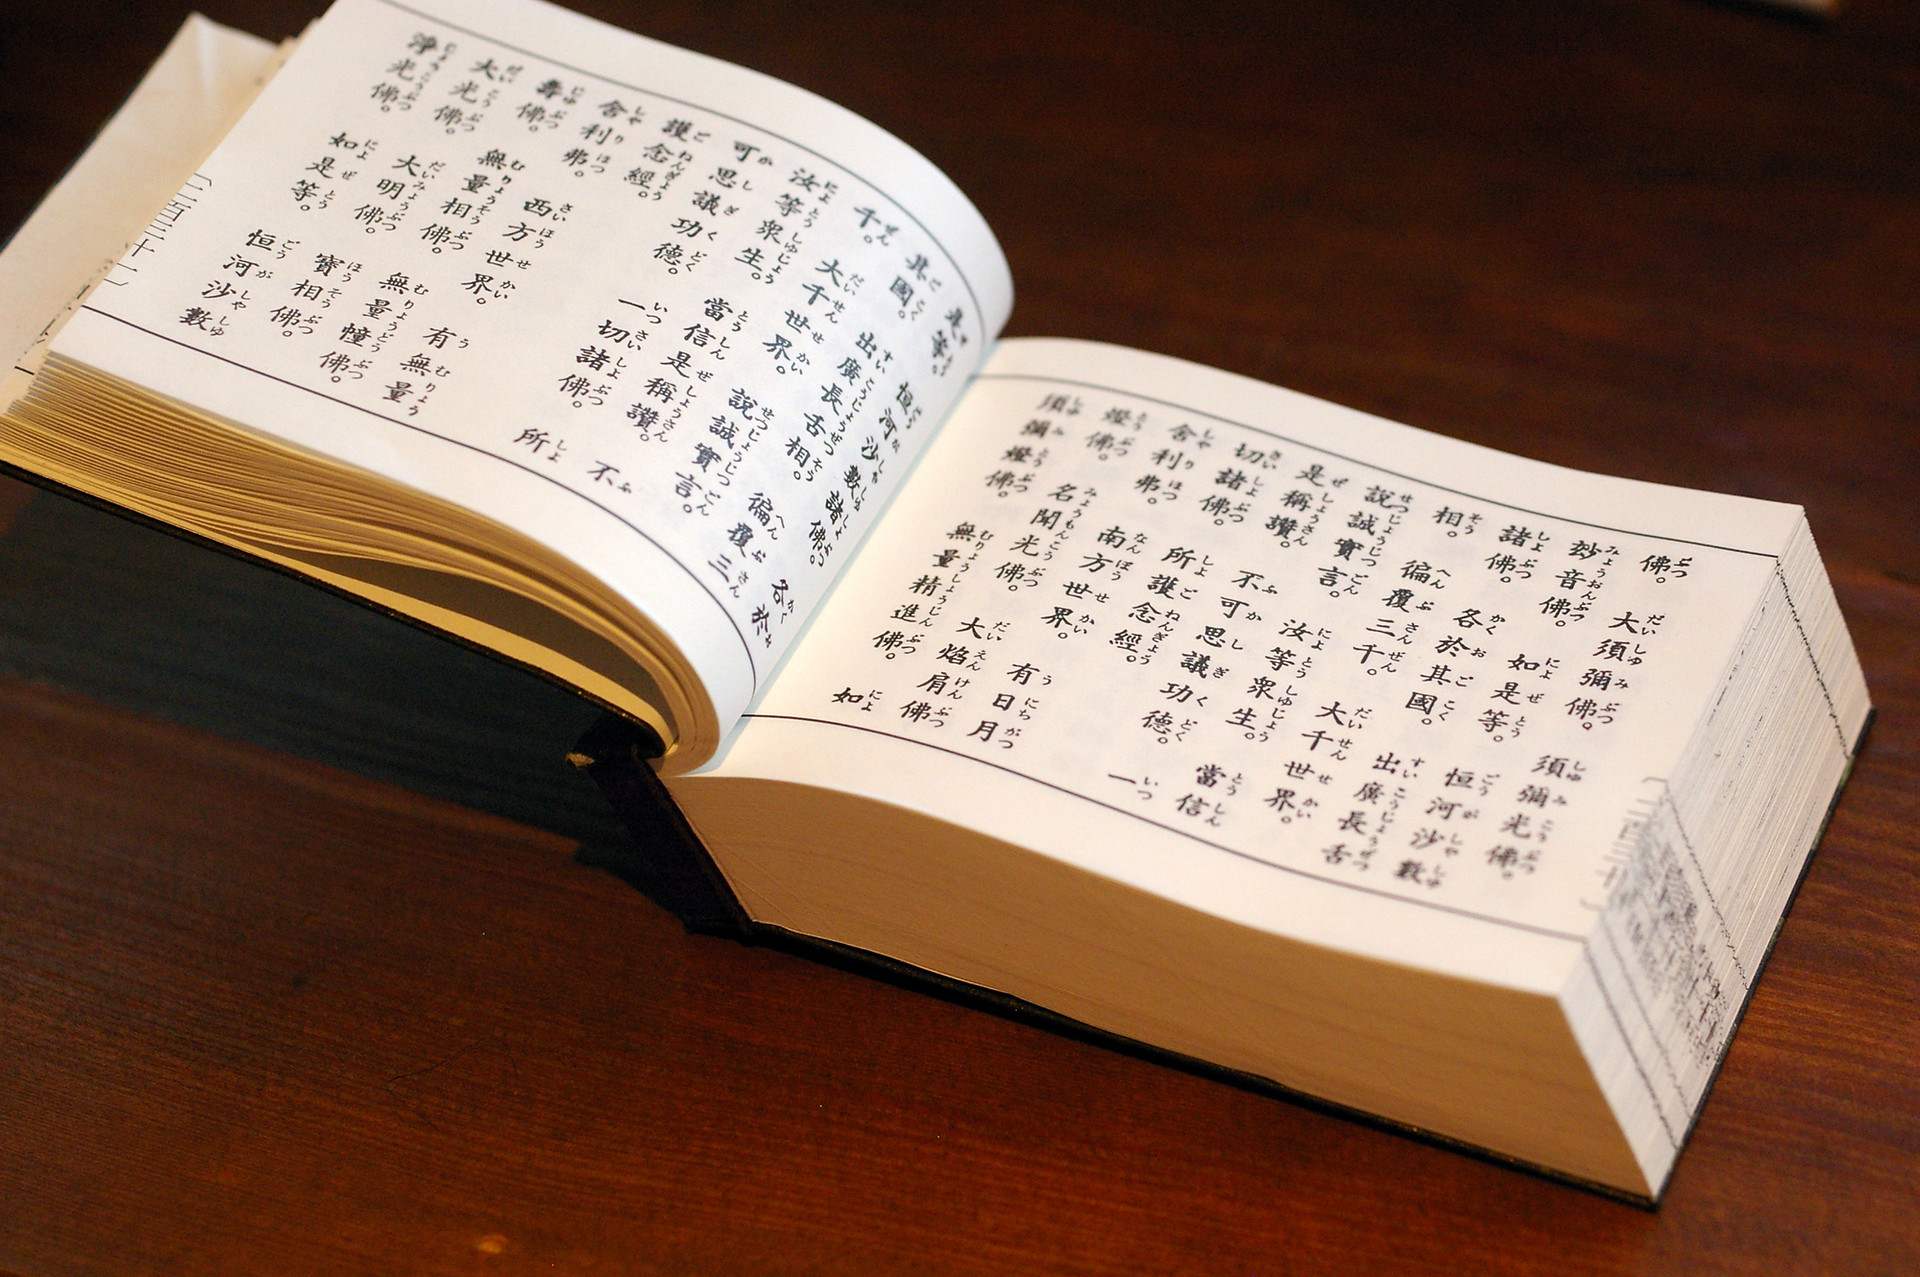 佛。 大須彌佛。 須彌光佛。
妙音佛。 如是等。 恒河沙數
諸佛。 各於其國。 出廣長舌
相。 徧覆三千。 大千世界。
説誠實言。 汝等衆生。 當信
是稱讚。 不可思議功德。 一
切諸佛。 所護念經。
舍利弗。 南方世界。 有日月
燈佛。 名聞光佛。 大焰肩佛
須彌燈佛。 無量精進佛。 如
〔二百三十〕
是等。 恒河沙數諸佛。 各於
其國。 出廣長舌相。 徧覆三
千。 大千世界。 説誠實言。
汝等衆生。 當信是稱讚。 不
可思議功德。 一切諸佛。 所
護念經。
舍利弗。 西方世界。 有無量
壽佛。 無量相佛。 無量幢佛。
大光佛。 大明佛。 寶相佛。
淨光佛。 如是等。 恒河沙數
〔二百三十一〕